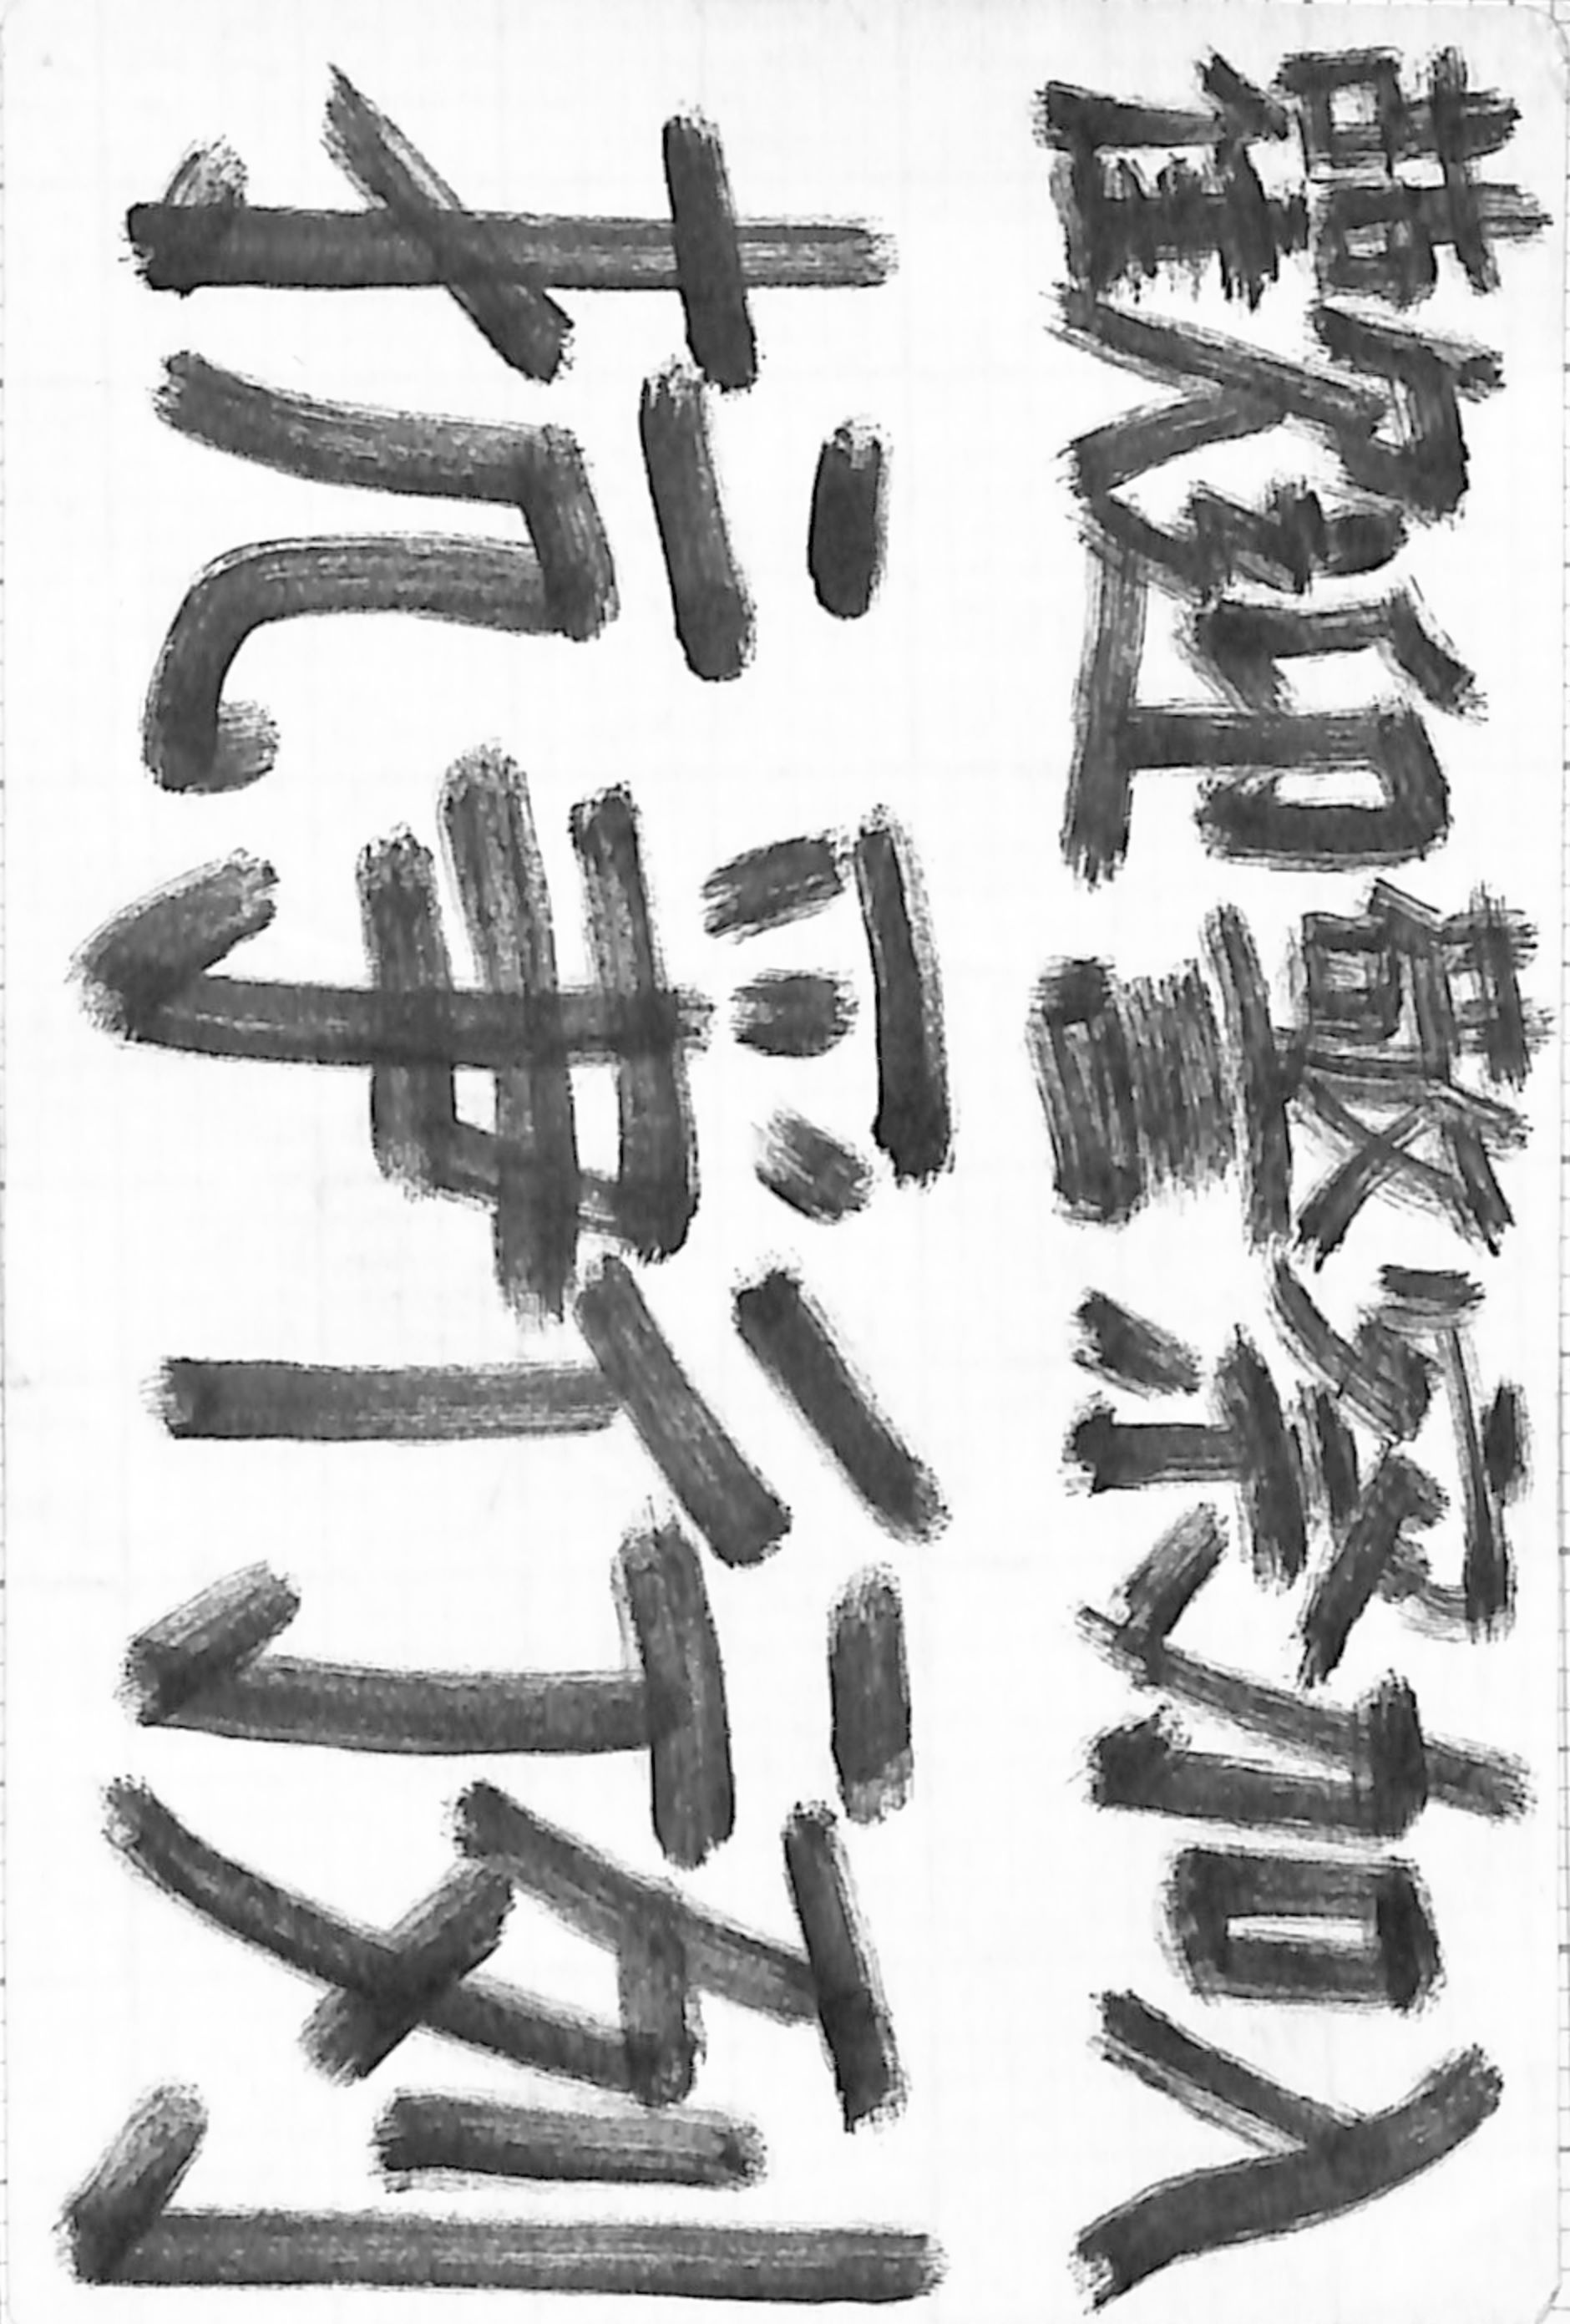 歡迎警察加入
抗爭行列